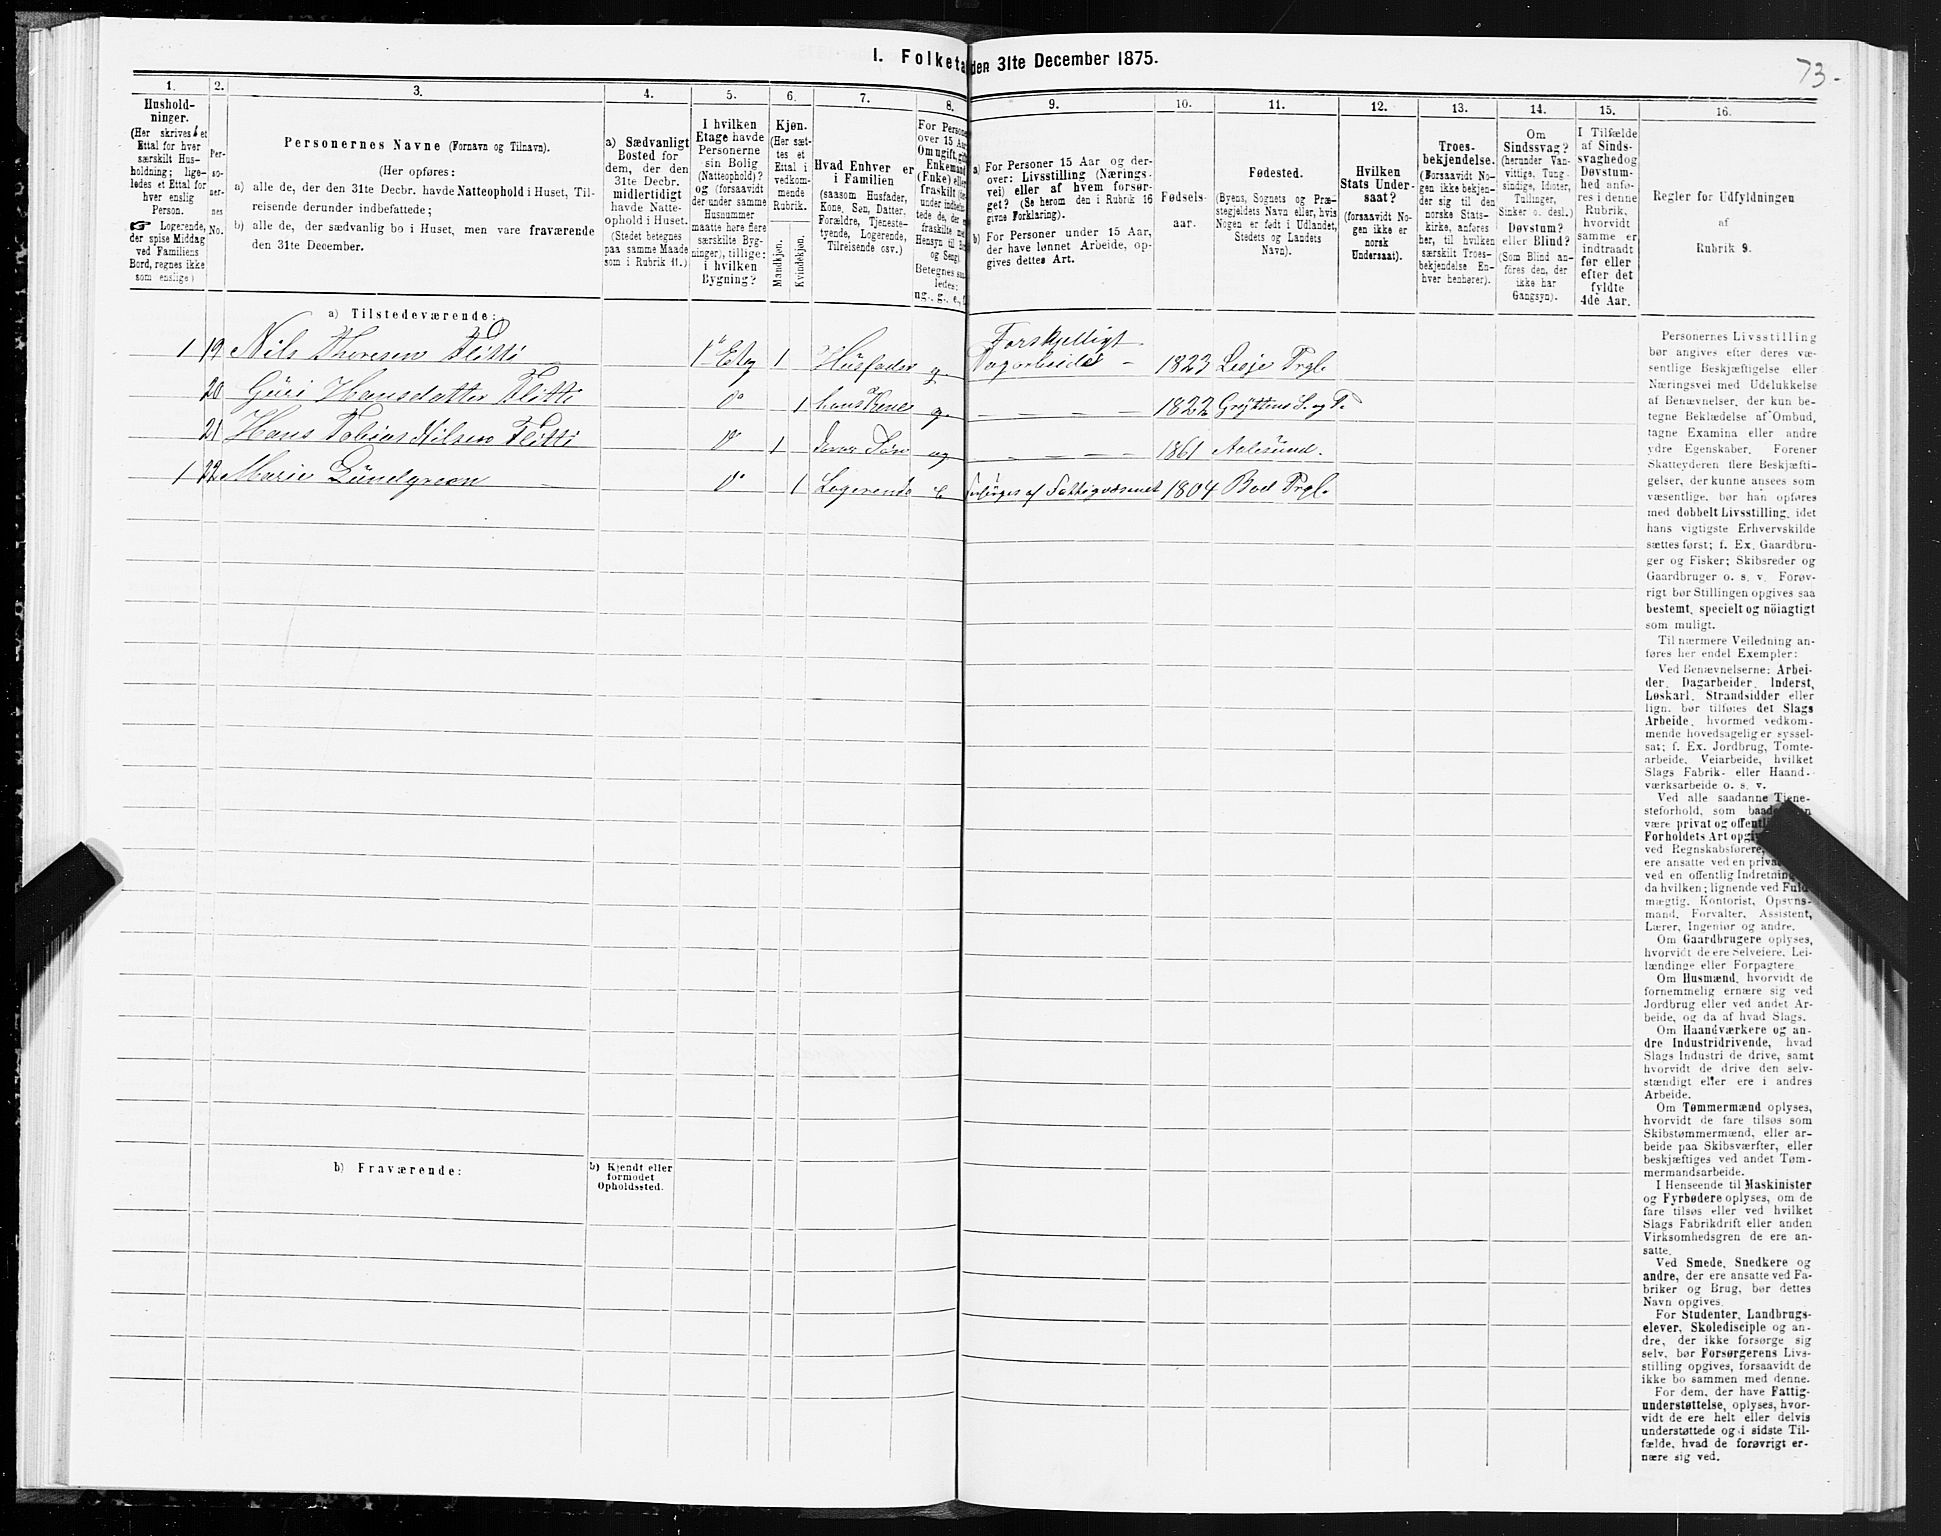 I. Folketa
den 31te December 1875.
73.
1.
Hushold-
ninger.
(Her skrives et
Ettal for hver
særskilt Hus-
holdning; lige-
ledes et Ettal for
hver enslig
Person.
☞ Logerende,
der spise Middag
ved Familiens
Bord, regnes ikke
som enslige)
2.
Per-
so-
ner-
nes
No.
3.
Personernes Navne (Fornavn og Tilnavn).
(Her opføres:
a) alle de, der den 31te Decbr. havde Natteophold i Huset, Til-
reisende derunder indbefattede;
b) alle de, der sædvanlig bo i Huset, men vare fraværende
den 31te December.
4.
a) Sædvanligt
Bosted for
dem, der den
31te Decbr.
midlertidigt
havde Natte-
ophold i Huset.
(Stedet betegnes
paa samme Maade
som i Rubrik 11.)
5.
I hvilken
Etage havde
Personerne
sin Bolig
(Natteophold)?
og (forsaavidt
der under samme
Husnummer
maatte høre flere
særskilte Byg-
ninger), tillige:
i hvilken
Bygning?
6.
Kjøn.
(Her sæt-
tes et
Ettal i
vedkom-
mende
Rubrik.
Mandkjøn.
Kvindekjøn.
7.
Hvad Enhver er
i Familien
(saasom Husfader,
Kone, Søn, Datter,
Forældre, Tjeneste-
tyende, Logerende,
Tilreisende osv.)
8.
For Persone
over 15 Aar
Om ugift, gift
Enkemand
(Enke) elle
fraskilt
ng., g., e., f.
9.
a) For Personer 15 Aar og der-
over: Livsstilling (Nærings-
vei) eller af hvem forsør-
get? (Se herom den i Rubrik 16
givne Forklaring).
b) For Personer under 15 Aar,
der have lønnet Arbeide, op-
gives dettes Art.
10.
Fødsels-
aar.
11.
Fødested.
(Byens, Sognets og Præ-
stegjeldets Navn eller, hvis
Nogen er født i Udlandet,
Stedets og Landets
Navn).
12.
Hvilken
Stats Under-
saat?
(forsaavidt No-
gen ikke er
norsk
Undersaat).
13.
Troes-
bekjendelse.
(Forsaavidt No-
gen ikke bekjen-
der sig til den
norske Stats-
kirke, anføres
her, til hvilken
særskilt Troes-
bekjendelse En-
hver henhører).
14.
Om
Sindssvag?
(herunder Van-
vittige, Tung-
sindige, Idioter,
Tullinger,
Sinker o. desl.)
Døvstum?
eller Blind?
(Som Blind an-
føres den, der
ikke har
Gangsyn).
15.
I Tilfælde
af Sinds-
svaghed og
Døvstum-
hed anfø-
res i denne
Rubrik,
hvorvidt
samme er
indtraadt
før eller
efter det
fyldte
4de Aar.
16.
Regler for Udfyldningen
af
Rubrik 9.
a) Tilstedeværende:
1 19 Nils Thoresen Flitti 1ste Etag 1 Husfader g. Forskjelligt
Dagarbeide – 1823 Lesje Prgl.
20 Guri Hansdatter Flitti Do 1 hans Kone g. – – – – 1822 Gryttens S. og P.
21 Hans Tobias Nilsen Flitti Do 1 deres Søn ug – – – – 1861 Aalesund.
1 22 Marie Lundgreen Do 1 Logerende e forsørges af Fattigvæsenet 1804 Bod Prgl.
b) Fraværende:
b) Kjendt eller
formodet
Opholdssted.
Personernes Livsstilling
bør angives efter deres væ-
sentlige Beskjæftigelse eller
Næringsvei med Udelukkelse
af Benævnelser, der kun be-
tegne Beklædelse af Ombud,
tagne Examina eller andre
ydre Egenskaber. Forener
Skatteyderen flere Beskjæfti-
gelser, der kunne ansees som
væsentlige, bør han opføres
med dobbelt Livsstilling, idet
hans vigtigste Erhvervskilde
sættes først; f. Ex. Gaardbru-
ger og Fisker; Skibsreder og
Gaardbruger o. s. v. Forøv-
rigt bør Stillingen opgives saa
bestemt, specielt og nöiagtigt
som muligt.
Til nærmere Veiledning an-
føres her endel Exempler:
Ved Benævnelserne: Arbei-
der, Dagarbeider, Inderst,
Løskarl, Strandsidder eller
lign. bør tilføies det Slags
Arbeide, hvormed vedkom-
mende hovedsagelig er syssel-
sat; f. Ex. Jordbrug, Tomte-
arbeide, Veiarbeide, hvilket
Slags Fabrik- eller Haand-
værksarbeide o. s. v.
Ved alle saadanne Tjene-
steforhold, som baade
være privat og
Forholdets Art
ved Regnskabsførere,
ere ansatte ved en
ved en offentlig Indretning
da hvilken; lignende ved Fuld-
mægtig, Kontorist, Opsyns-
mand, Forvalter, Assistent,
Lærer, Ingeniør og andre.
Om Gaardbrugere oplyses,
hvorvidt de ere Selveiere, Lei-
lændinge eller Forpagtere
Om Husmænd, hvorvidt de
fornemmelig ernære sig ved
Jordbrug eller ved andet Ar-
beide, og da af hvad Slags.
Om Haandværkere og an-
dre Industridrivende, hvad
Slags Industri de drive, samt
hvorvidt de drive den selv-
stændigt eller ere i andres
Arbeide.
Om Tømmermænd oplyses,
hvorvidt de fare tilsøs som
Skibstømmermænd, eller ar-
beide paa Skibsværfter, eller
beskjæftiges ved andet Tøm-
mermandsarbeide.
I Henseende til Maskinister
og Fyrbødere oplyses, om de
fare tilsøs eller ved hvilket
Slags Fabrikdrift eller anden
Virksomhedsgren de ere an-
satte.
Ved Smede, Snedkere og
andre, der ere ansatte ved Fa-
briker og Brug, bør dettes
Navn opgives.
For Studenter, Landbrugs-
elever, Skoledisciple og an-
dre, der ikke forsørge sig
selv, bør Forsørgerens Livs-
stilling opgives, forsaavidt de
ikke bo sammen med denne.
For dem, der have Fattig-
understøttelse, oplyses, hvor-
vidt de ere helt eller delvis
understøttede og i sidste Til-
fælde, hvad de forøvrigt er-
nære sig ved.